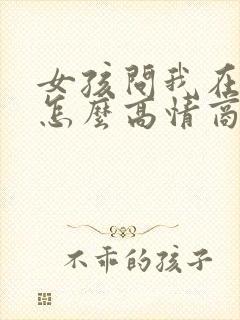 女孩問我在
怎麼高情商
不乖的孩子